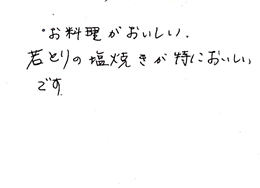 ・お料理がおいしい.
若とりの塩焼きが特においしい
です